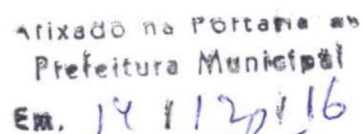 Afixado na Portaria da
Prefeitura Municipal
Em, 14 / 12 / 16